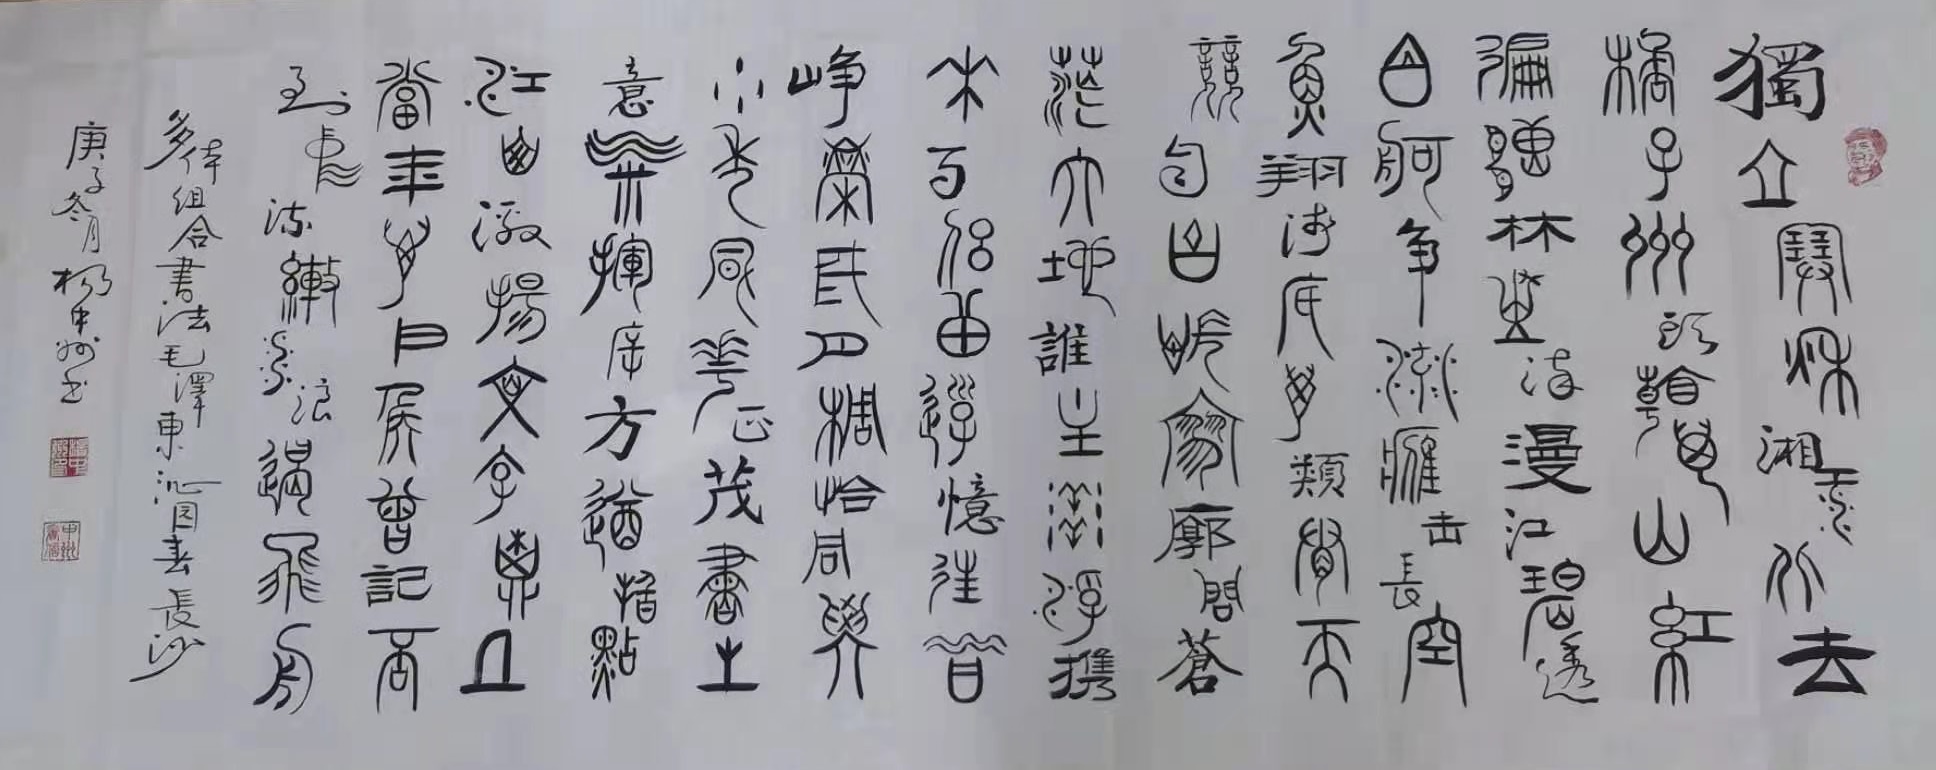 獨立寒秋湘江北去
橘子州頭看萬山紅
遍層林盡染漫江碧透
百舸爭流鷹击長空
魚翔淺底萬類霜天
競自由悵寥廓問蒼
茫大地誰主沉浮攜
來百侶曾遊憶往昔
崢嶸歲月稠恰同學
少年風華正茂書生
意氣揮斥方遒指點
江山激揚文字糞土
當年萬戶侯曾記否
到中流擊水浪遏飛舟
多体组合書法毛澤東沁园春長沙
庚子冬月